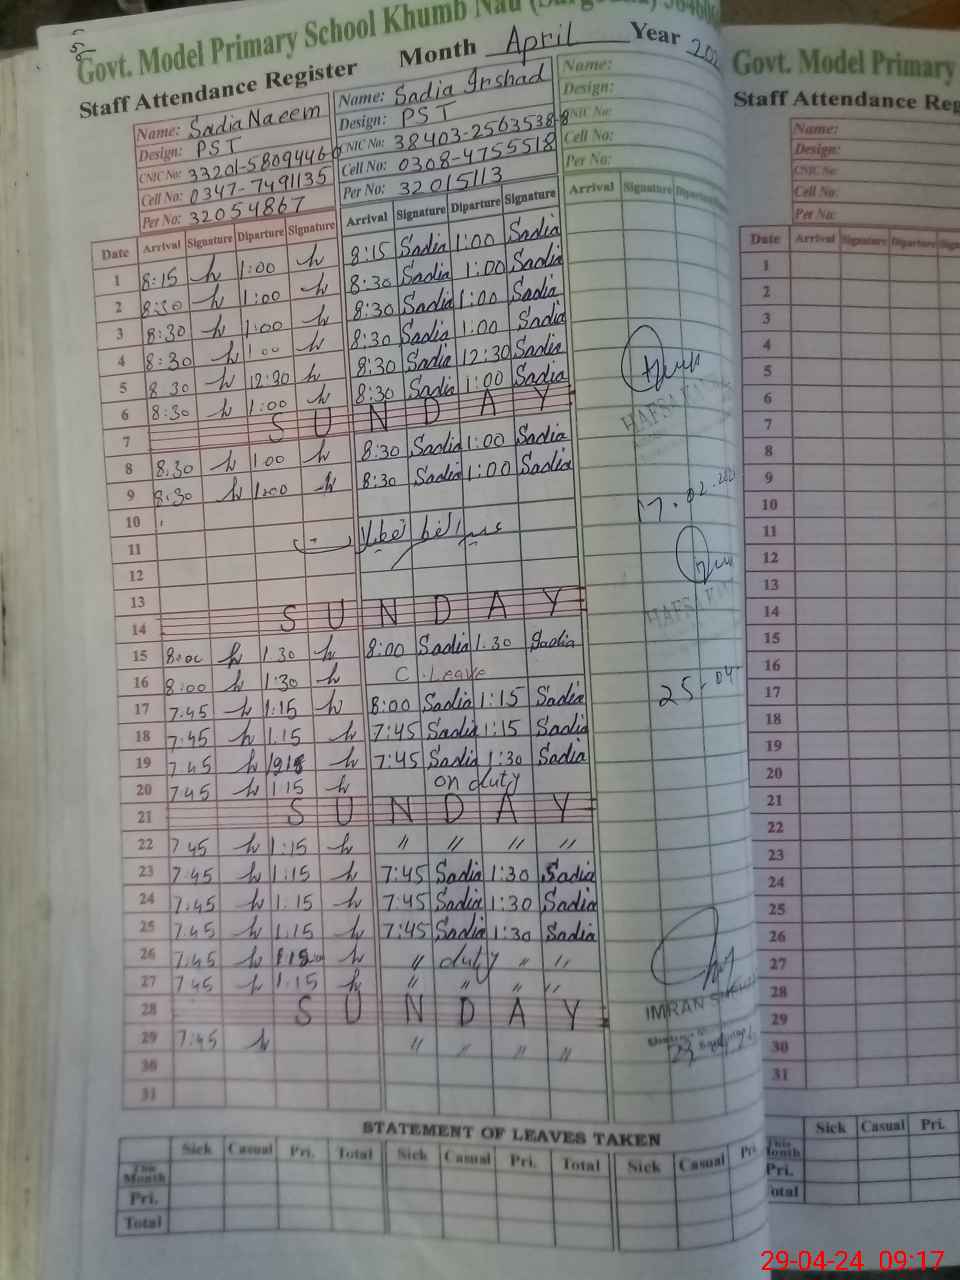 Govt. Model Primary School Khumb Nau
Staff Attendance Register Month April Year
Name: Sadia Naeem Name: Sadia Irshad Name:
Design: PST Design: PST Design:
CNIC No: 33201-5809446-0 CNIC No: 38403-2563538-8 CNIC No:
Cell No: 0347-7491135 Cell No: 0308-4755518 Cell No:
Per No: 32054867 Per No: 32015113 Per No:
Date Arrival Signature Diparture Signature Arrival Signature Diparture Signature Arrival Signature Diparture
1 8:15 1:00 8:15 Sadia 1:00 Sadia
2 8:30 1:00 8:30 Sadia 1:00 Sadia
3 8:30 1:00 8:30 Sadia 1:00 Sadia
4 8:30 1:00 8:30 Sadia 1:00 Sadia
5 8:30 12:30 8:30 Sadia 12:30 Sadia
6 8:30 1:00 8:30 Sadia 1:00 Sadia
7 SUNDAY
8 8:30 1:00 8:30 Sadia 1:00 Sadia
9 8:30 1:00 8:30 Sadia 1:00 Sadia
10
11
12
13
14 SUNDAY
15 8:00 1:30 8:00 Sadia 1:30 Sadia
16 8:00 1:30 C.Leave
17 7:45 1:15 8:00 Sadia 1:15 Sadia
18 7:45 1:15 7:45 Sadia 1:15 Sadia
19 7:45 7:45 Sadia 1:30 Sadia
20 7:45 1:15 on duty
21 SUNDAY
22 7:45 1:15 " " " "
23 7:45 1:15 7:45 Sadia 1:30 Sadia
24 7:45 1:15 7:45 Sadia 1:30 Sadia
25 7:45 1:15 7:45 Sadia 1:30 Sadia
26 7:45 " duty " "
27 7:45 1:15 " " " "
28 SUNDAY
29 7:45 " " " "
30
31
HAFSA
25-04-
IMRAN
STATEMENT OF LEAVES TAKEN
Sick Casual Pri. Total Sick Casual Pri. Total Sick Casual Pri
This Month
Pri.
Total
Govt. Model Primary
Staff Attendance Reg
Name:
Design:
CNIC No:
Cell No:
Per No:
Date Arrival Signature Diparture
1
2
3
4
5
6
7
8
9
10
11
12
13
14
15
16
17
18
19
20
21
22
23
24
25
26
27
28
29
30
31
Sick Casual Pri.
This Month
Pri.
Total
29-04-24 09:17